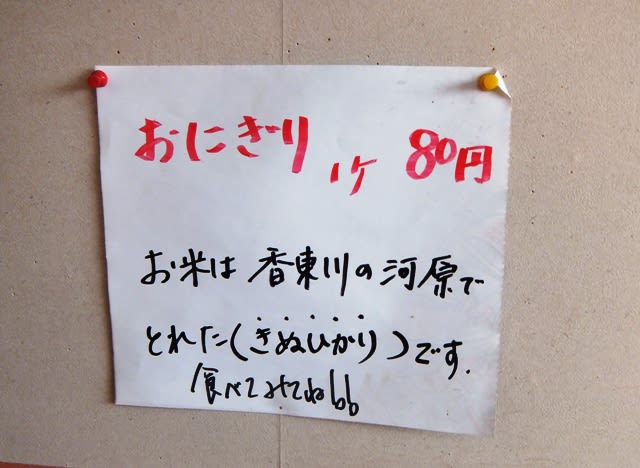 おにぎり 1ケ 80円
お米は 香東川の河原で
とれた(きぬひかり)です.
食べてみてねbb